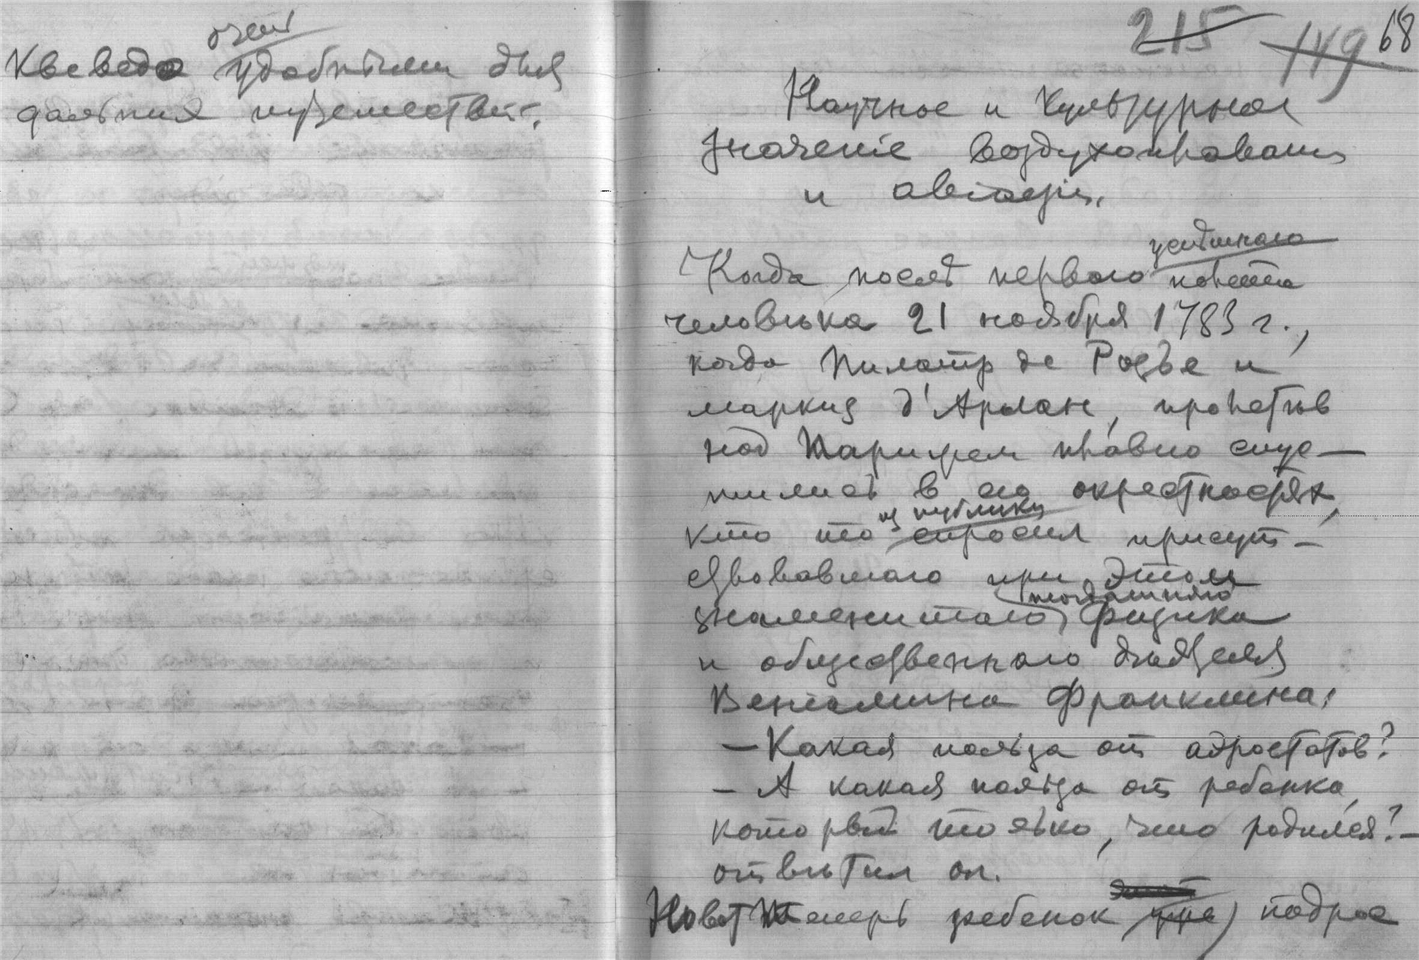 очень
Кеведо удобными для
дальних путешествий.
215 149 68
Научное и Культурное
Значеніе воздухоплаванія
и авіаціи.
успешнаго
Когда после перваго полета
человѣка 21 ноября 1783 г.,
когда Пилатр де Розье и
маркиз д'Арлан, пролетѣв
над Парижем плавно спус-
тились в его окрестностях,
из публики
кто то спросил присут-
ствовавшаго при этом
тогдашняго
знаменитаго физика
и общественнаго дѣятеля
Веніамина Франклина:
— Какая польза от аэростатов?
— А какая польза от ребенка,
который только, что родился? —
отвѣтил он.
Но вот теперь ребенок уже подрос